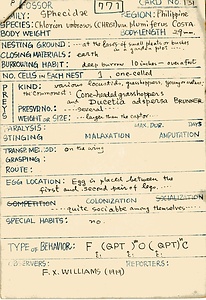 FOSSOR 777 CARD NO. 131
FAMILY: Sphecidae REGION: Philippine
SPECIES: Chlorion umbrosus (CHRIST) var. plumiferus Costa
BODY WEIGHT BODY LENGTH 29 mm.
NESTING GROUND: at the bases of small plants or bushes
in a garden plot
CLOSING MATERIALS: earth
BURROWING HABIT: deep burrow 10 inches
NO. CELLS IN EACH NEST 1 one-celled
PREYS
KIND: various locustids, grasshoppers, young or adult
Coneheaded grasshoppers
and Ducetia adspersa BRUNNER
PRESVD. NO.: several
WEIGHT OR SIZE: larger than the captor
PARALYSIS: DUR. DAYS
STINGING MALAXATION AMPUTATION
TRANSP. METHOD: on the wing
GRASPING:
ROUTE:
EGG LOCATION: Egg is placed between the
first and second pair of legs
COMPETITION COLONIZATION SOCIALIZATION
quite sociable among themselves
SPECIAL HABITS: no.
TYPE OF BEHAVIOR: F (QPT)O (QPT)C
OBSERVERS: REPORTERS:
F. X. WILLIAMS (1919)